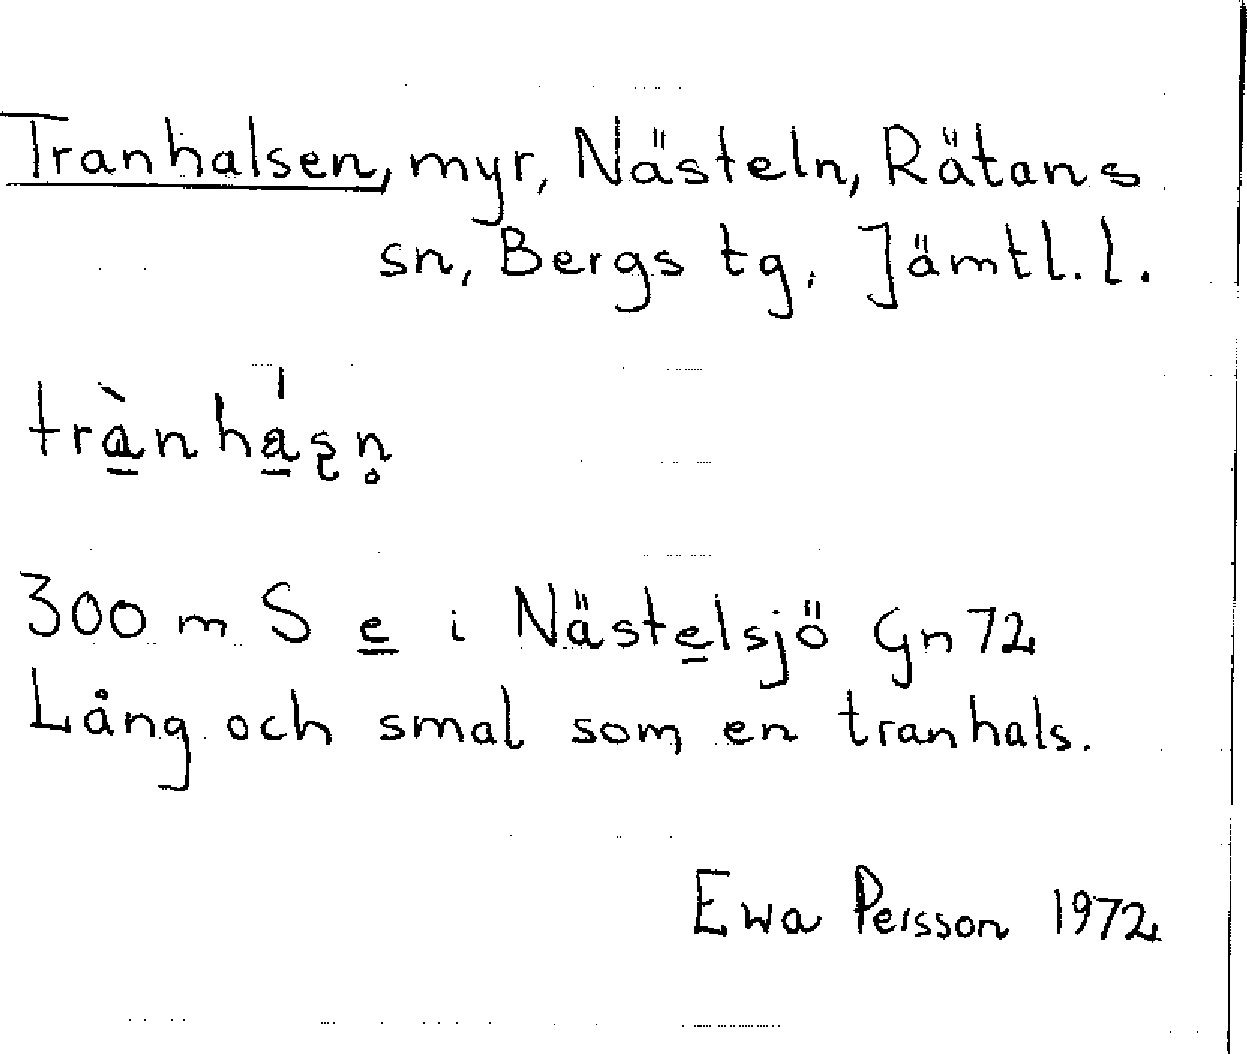 Tranhalsen, myr, Nästeln, Rätans
sn, Bergs tg. Jämtl. l.
trà̠nhá̠ʂn̥
300 m S e̲ i Näste̲lsjö Gn 72
Lång och smal som en tranhals.
Ewa Persson 1972